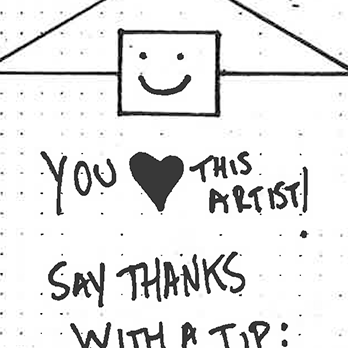 YOU ♥ THIS
ARTIST!
SAY THANKS
WITH A TIP: